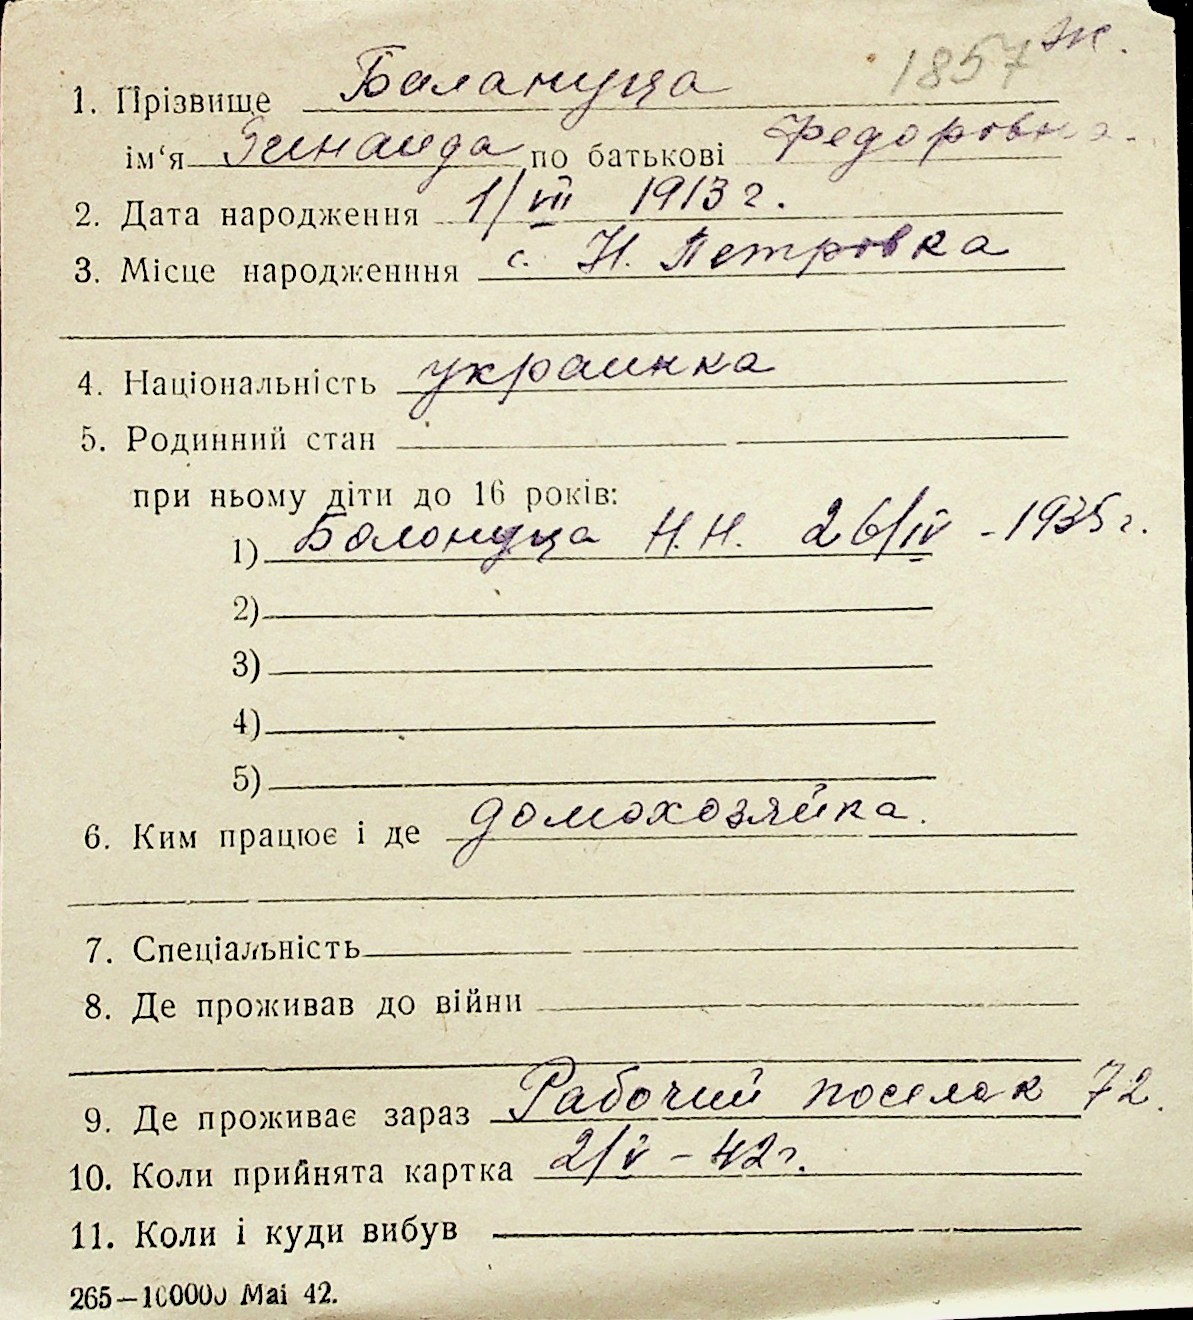 1857 Ж.
1. Прізвище Балануца
ім‘я Зинаида по батькові Федоровна.
2. Дата народження 1/VII 1913 г.
3. Місце народженння с. Н. Петровка
4. Національність украинка
5. Родинний стан
при ньому діти до 16 років:
1) Балануца Н.Н. 26/IV - 1935 г.
2)
3)
4)
5)
6. Ким працює і де домохозяйка.
7. Спеціальність
8. Де проживав до війни
9. Де проживає зараз Рабочий поселок 72.
10. Коли прийнята картка 2/V - 42 г.
11. Коли і куди вибув
265—100000 Mai 42.